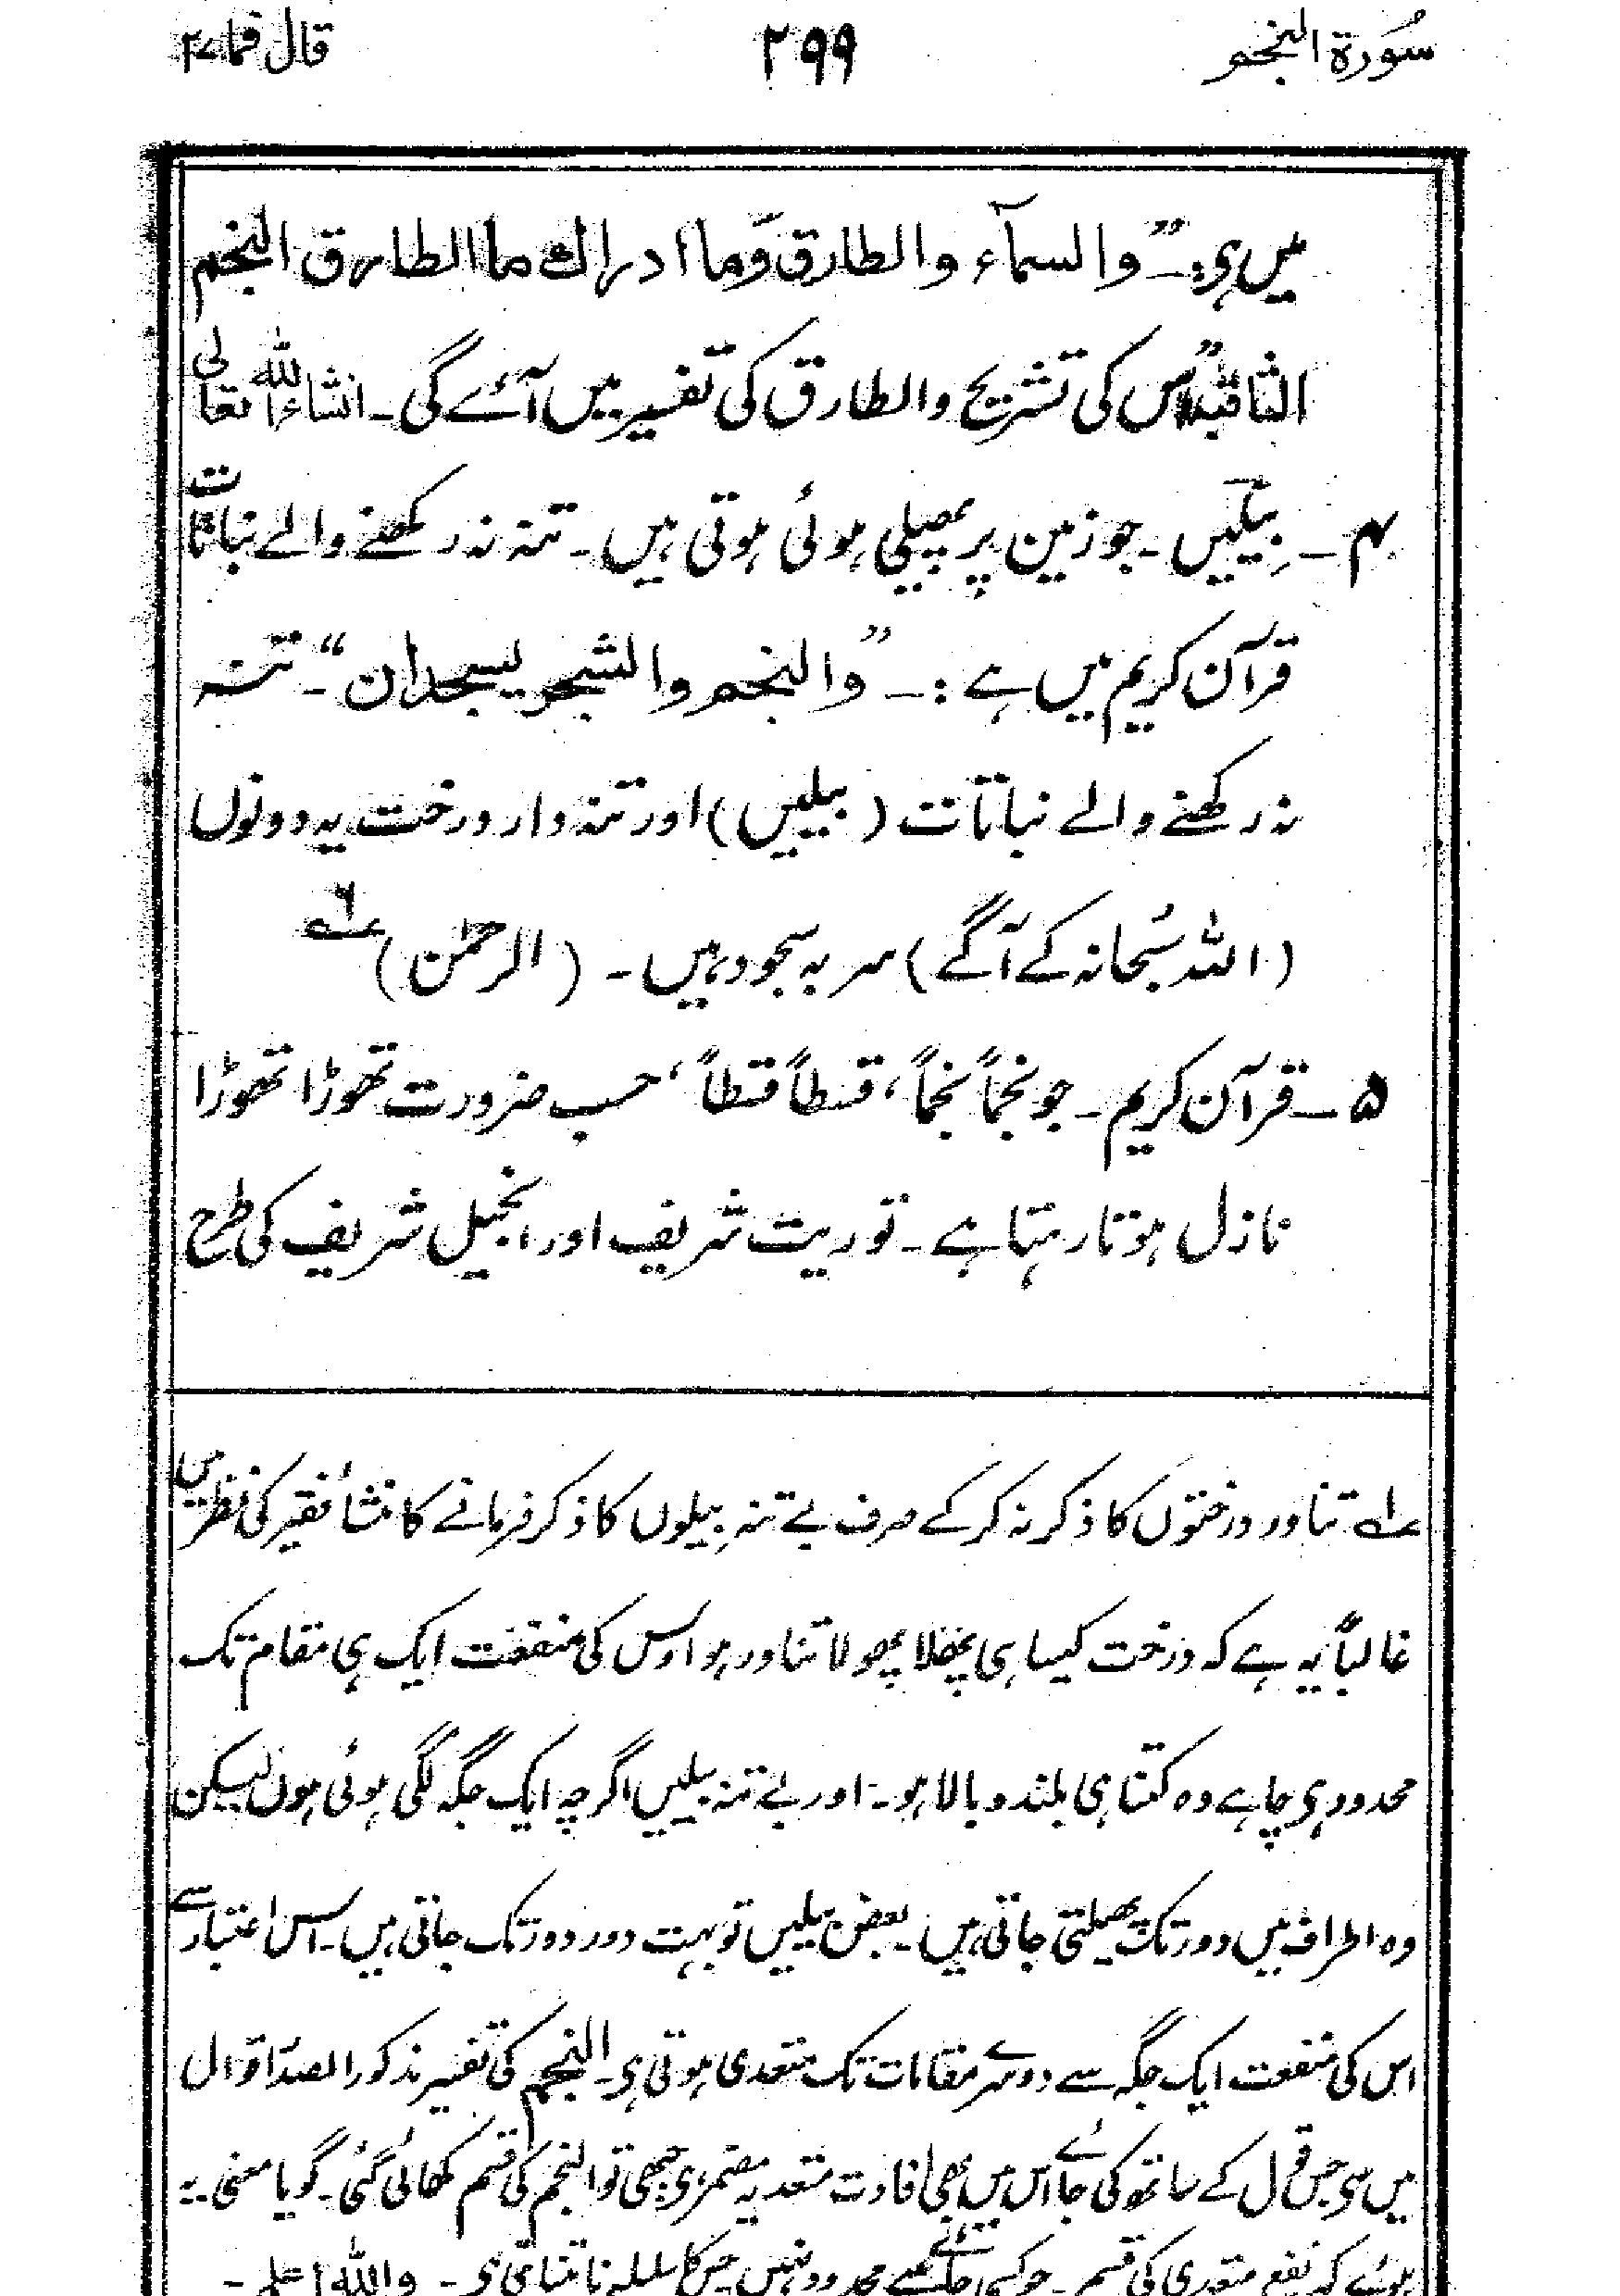 سُورة النجم ۲۹۹ قال فما ۲۷
میں ہی:۔ ”والسمآء والطارق وَّما ادراك ما الطارق النجم
الثاقب“ اس کی تشریح والطارق کی تفسیر میں آئے گی۔ انشاء اللہ تعالیٰ
۴۔ بِیلیں۔ جو زمین پر پھیلی ہوئی ہوتی ہیں۔ تنہ نہ رکھنے والے نباتات
قرآن کریم میں ہے:۔ ”والنجم والشجر یسجدان“۔ تنہ
نہ رکھنے والے نباتات (بیلیں) اور تنہ دار درخت یہ دونوں
(اللہ سُبحانہ کے آگے) سر بہ سجود ہیں۔ (الرحمٰن) ۶ ؎
۵۔ قرآن کریم۔ جو نجماً نجماً، قسطاً قسطاً، حسب ضرورت تھوڑا تھوڑا
نازل ہوتا رہتا ہے۔ توریت شریف اور انجیل شریف کی طرح
؎۱ تناور درختوں کا ذکر نہ کرکے صرف بے تنہ بیلوں کا ذکر فرمانے کا منشأ فقیر کی نظر میں
غالباً یہ ہے کہ درخت کیسا ہی پھلا پھولا تناور ہو اوس کی منفعت ایک ہی مقام تک
محدود ہی چاہے وہ کتنا ہی بلند و بالا ہو۔ اور بے تنہ بیلیں اگرچہ ایک جگہ لگی ہوئی ہوں لیکن
وہ اطراف میں دور تک پھیلتی جاتی ہیں۔ بعض بیلیں تو بہت دور دور تک جاتی ہیں۔ اس اعتبار سے
اس کی منفعت ایک جگہ سے دوسرے مقامات تک متعدی ہوتی ہی۔ النجم کی تفسیر مذکور الصدر اقوال
میں سی جس قول کے ساتھ کی جائے اس میں بھی افادت متعدیہ مضمر ہی جبھی تو النجم کی قسم کھائی گئی۔ گویا معنی یہ
ہوئے کہ نفع متعدی کی قسم۔ جو کسی محدود نہیں جس کا سلسلہ نا متناہی ہی۔ واللہ اعلم۔